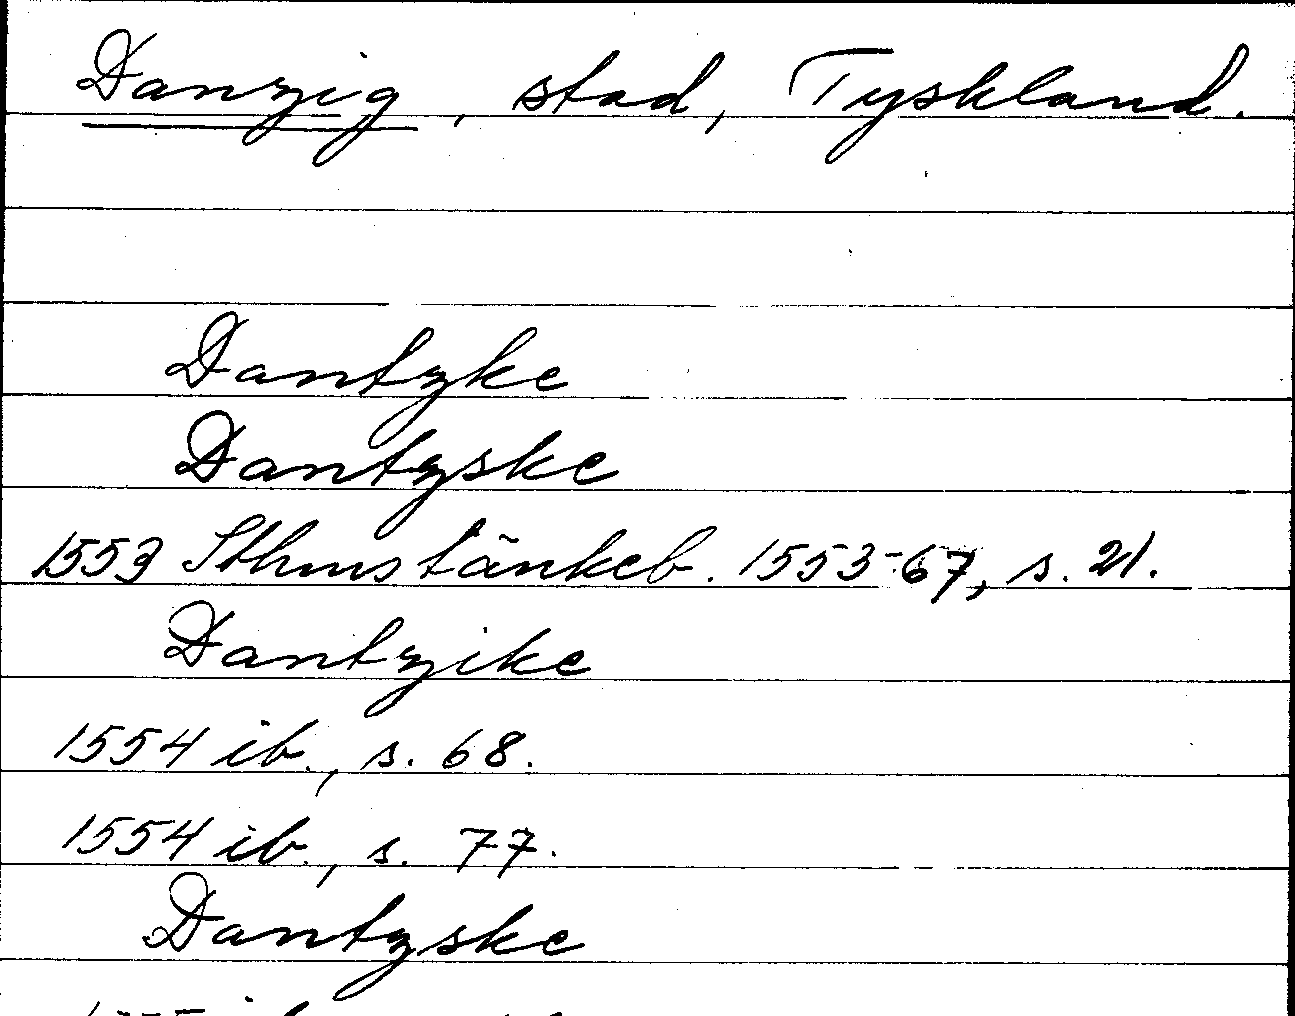 Danzig, stad, Tyskland.
Dantzke
Dantzske
1553 Sthms tänkeb. 1553-67, s. 21.
Dantzike
1554 ib., s. 68.
1554 ib., s. 77.
Dantzske